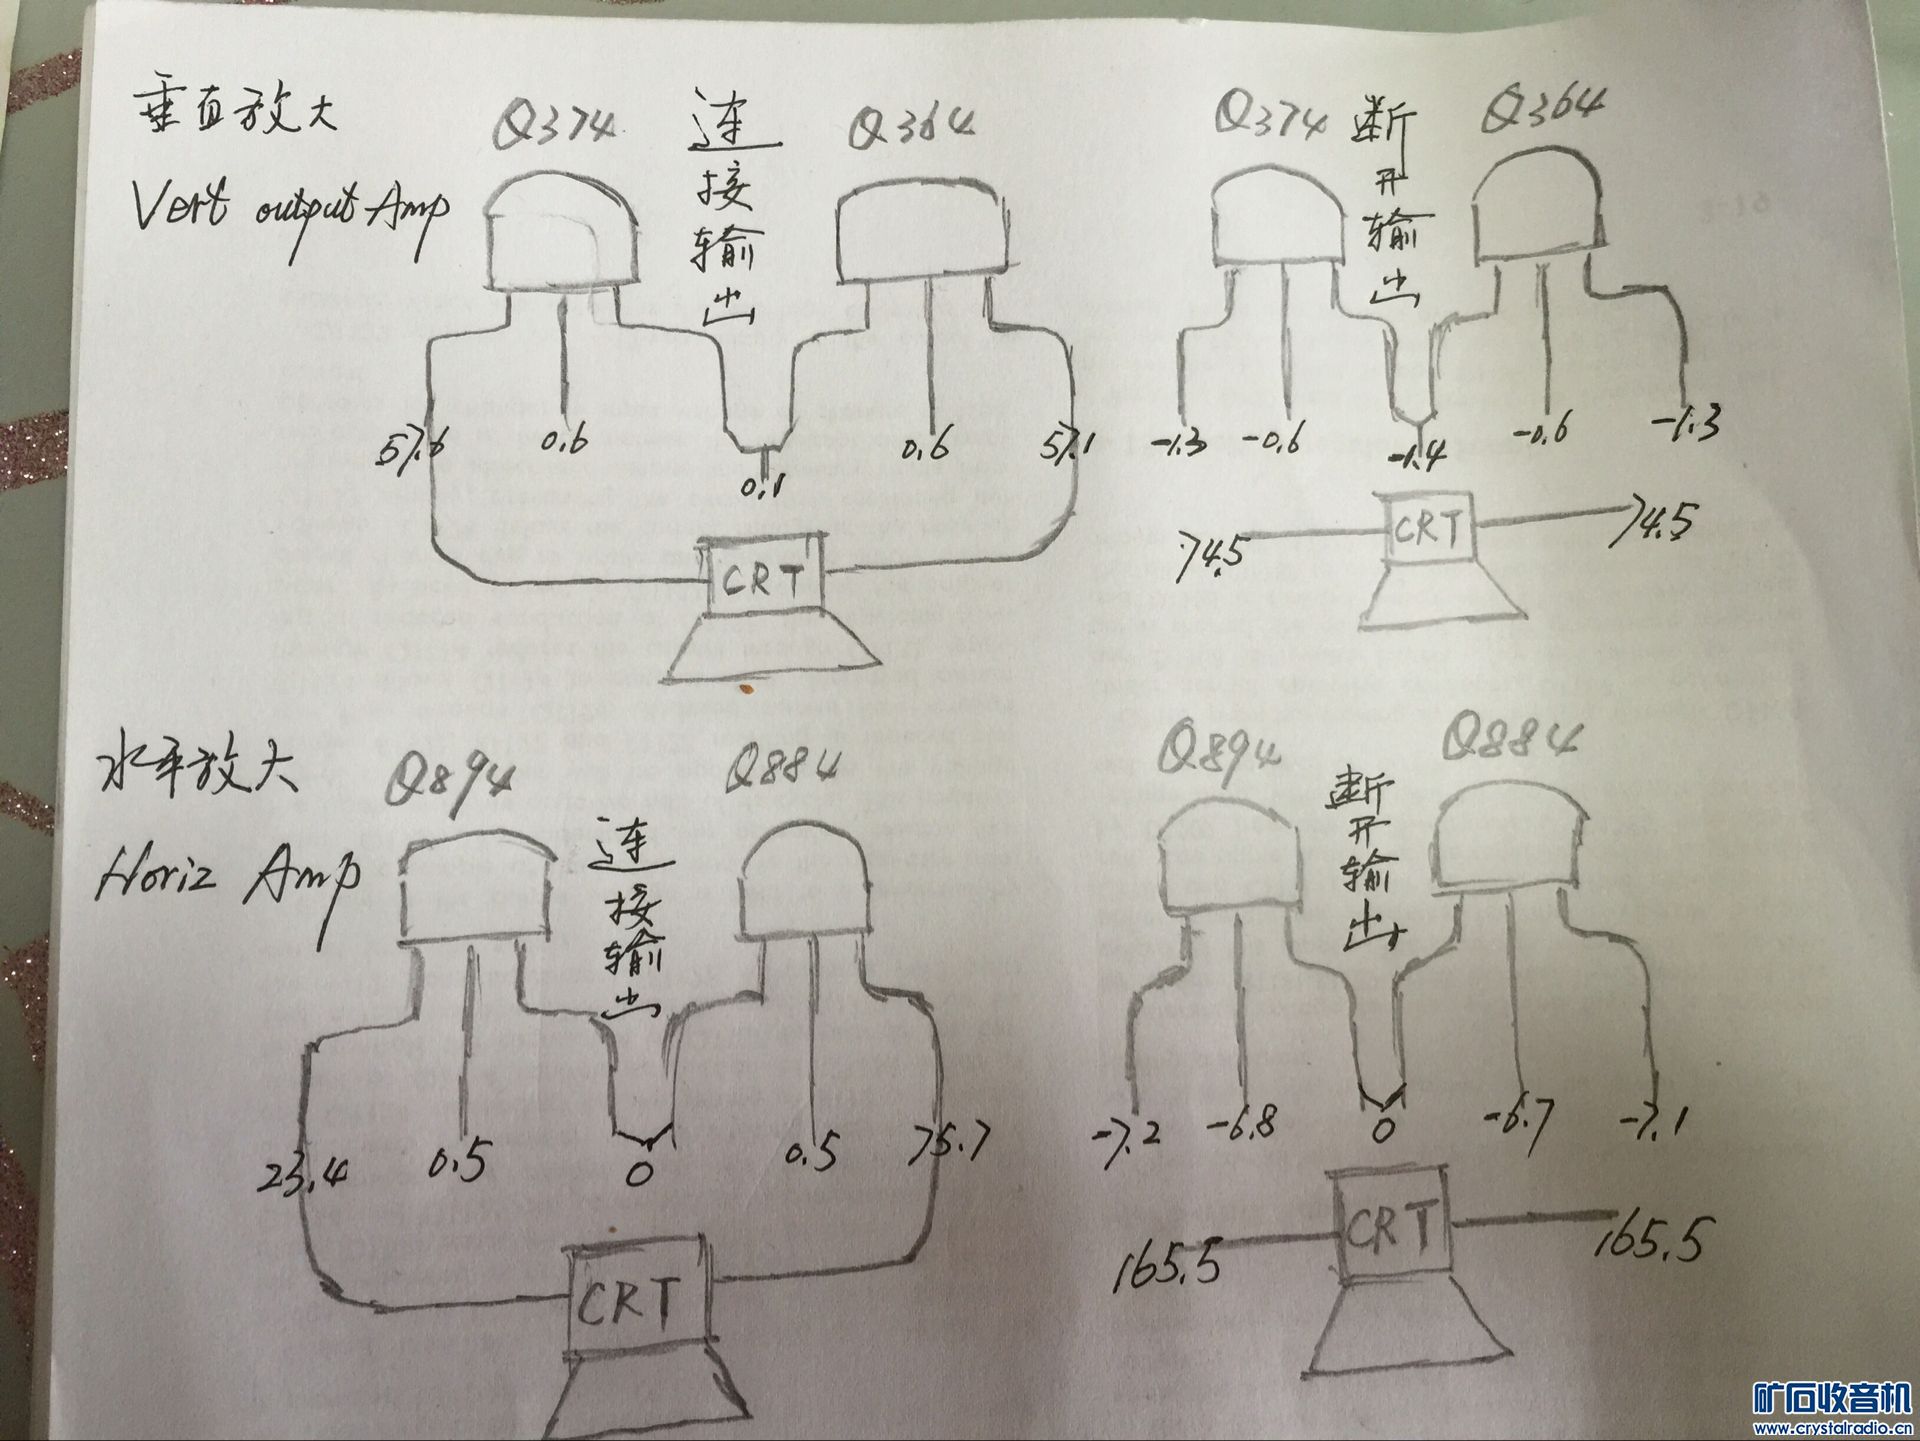 垂直放大
Vert output Amp
Q374
连接输出
Q364
57.6
0.6
0.1
0.6
57.1
CRT
Q374
断开输出
Q364
-1.3
-0.6
-1.4
-0.6
-1.3
74.5
CRT
74.5
水平放大
Horiz Amp
Q894
连接输出
Q884
23.4
0.5
0
0.5
75.7
CRT
Q894
断开输出
Q884
-7.2
-6.8
0
-6.7
-7.1
165.5
CRT
165.5
矿石收音机
www.crystalradio.cn